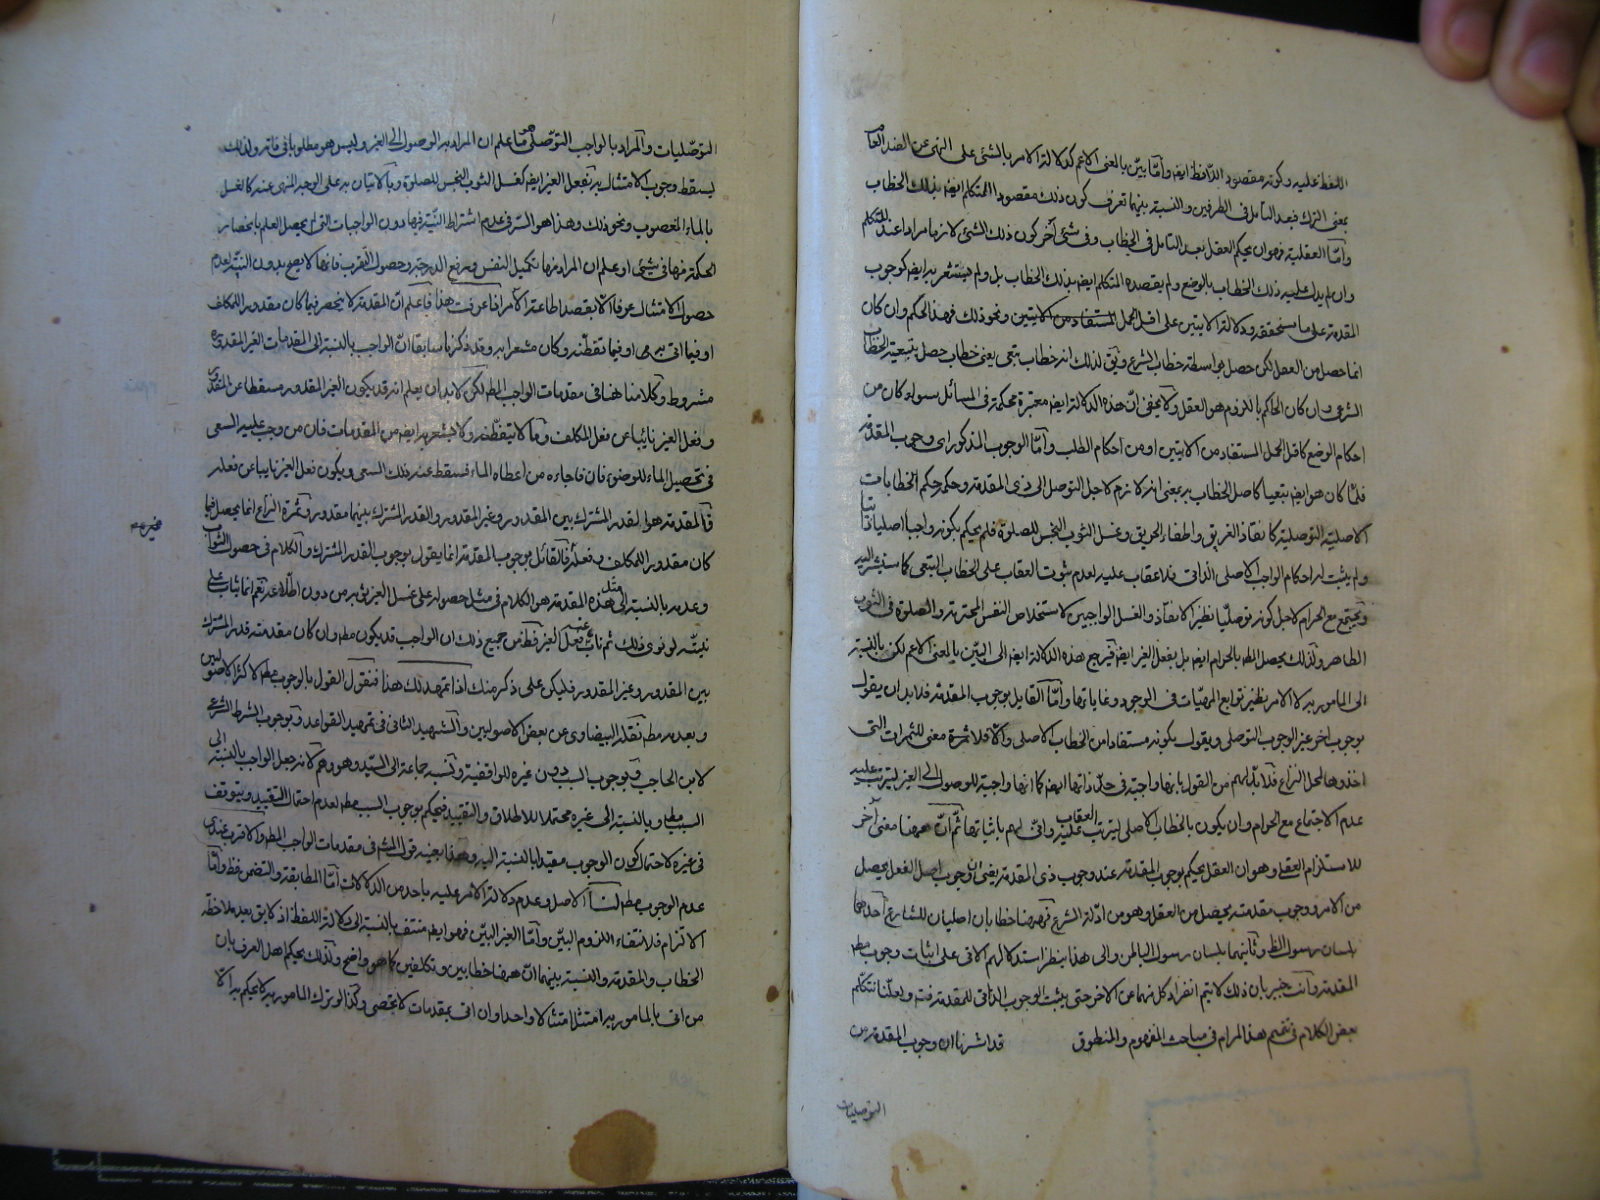 اللفظ عليه وكونه مقصود اللافظ ايضا وأمّا بيّن بالمعنى الاعم كدلالة الامر بالشئ على النهى عن الضد العام
بمعنى الترك فبعد التأمل فى الطرفين والنسبة بينهما تعرف كون ذلك مقصود المتكلم ايضا بذلك الخطاب
وأمّا العقلية فهو ان يحكم العقل بعد التأمل فى الخطاب وفى شئ آخر كون ذلك الشئ لازما مرادا عند المتكلم
وان لم يدل عليه ذلك الخطاب بالوضع ولم يقصده المتكلم ايضا بذلك الخطاب بل ولم يستشعر به ايضا كوجوب
المقدمة على ما سنحققه ودلالة الايتين على اقل الحمل المستفاد من الايتين ونحو ذلك فهذا الحكم وان كان
انما حصل من العقل لكن حصل بواسطة خطاب الشرع ويق لذلك انه خطاب تبعى يعنى خطاب حصل بتبعية الخطاب
الشرعى وان كان الحاكم باللزوم هو العقل ولا يخفى انّ هذه الدلالة ايضا معتبرة محكمة فى المسائل سواء كان من
احكام الوضع كاقل الحمل المستفاد من الايتين او من احكام الطلب وأمّا الوجوب المذكور اى وجوب المقدمة
فلمّا كان هو ايضا تبعيا كاصل الخطاب به بمعنى انه لازم لاجل التوصل الى ذى المقدمة وحكمه حكم الخطابات
الاصلية التوصلية كانقاذ الغريق واطفاء الحريق وغسل الثوب النجس للصلوة فلم يحكم بكونه واجبا اصليا ذاتيا
ولم يثبت له احكام الواجب الاصلى الذاتى فلا عقاب عليه لعدم ثبوت العقاب على الخطاب التبعى كما سنشير اليه
ويجتمع مع الحرام لاجل كونه توصليا نظير الانقاذ والغسل الواجبين لاستخلاص النفس المحترمة والصلوة فى الثوب
الطاهر ولذلك يحصل المط بالحرام ايضا بل بفعل الغير ايضا فيرجع هذه الدلالة ايضا الى البيّن بالمعنى الاعم لكن بالنسبة
الى المامور به لا الامر نظير توابع المهيات فى الوجود وغاياتها وأمّا القايل بوجوب المقدمة فلابد ان يقول
بوجوب اخر غير الوجوب التوصلى ويقول بكونه مستفادا من الخطاب الاصلى والا فلا ثمرة معنى للثمرات التى
اخذوها لمحل النزاع فلابد لهم من القول بانها واجبة فى حدّ ذاتها ايضا كما انها واجبة للوصول الى الغير ليترتب عليه
عدم الاجتماع مع الحرام وان يكون بالخطاب الاصلى ليترتب العقاب عليه وانى لهم باثباتها ثمّ انّ ههنا معنى آخر
للاستلزام العقلى وهو ان العقل يحكم بوجوب المقدمة عند وجوب ذى المقدمة يعنى انّ وجوب اصل الفعل يحصل
من الامر ووجوب مقدمته يحصل من العقل وهو من ادلّة الشرع فههنا خطابان اصليان للشارع احدهما
بلسان رسول الظ وثانيهما بلسان رسول الباطن والى هذا ينظر استدلالهم الاتى على اثبات وجوب مط
المقدمة وأنت خبير بان ذلك لا يتم انفراد كل منهما عن الاخر حتى يثبت الوجوب الذاتى للمقدمة فتم ولعلّنا نتكلّم
بعض الكلام فى تتميم هذا المرام فى مباحث المفهوم والمنطوق قد اشرنا ان وجوب المقدمة من
التوصليات
التوصّليات والمراد بالواجب التوصّلى هو ما علم ان المراد به الوصول الى الغير وليس هو مطلوبا فى ذاته ولذلك
يسقط وجوب الامتثال به بفعل الغير ايضا كغسل الثوب النجس للصلوة وبالاتيان به على الوجه المنهى عنه كالغسل
بالماء المغصوب ونحو ذلك وهذا هو السّر فى عدم اشتراط النيّة فيها دون الواجبات التى لم يحصل العلم بانحصار
الحكمة فيها فى شئ او علم ان المراد منها تكميل النفس ورفع الدرجة وحصول التقرب فانها لا يصح بدون النيّة لعدم
حصول الامتثال عرفا الا بقصد اطاعة الامر اذا عرفت هذا فاعلم انّ المقدمة لا ينحصر فيما كان مقدورا للمكلف
او فيما اتى به او فيما تفطّنه وكان مشعرا به وقد ذكرنا سابقا انّ الواجب بالنسبة الى المقدمات الغير المقدورة
مشروط وكلامنا هنا فى مقدمات الواجب المط لكن لابد ان يعلم انه قد يكون الغير المقدور مسقطا عن المقدور
وفعل الغير نايبا عن فعل المكلف وما لا يتفطّنه ولا يستشعر به ايضا من المقدمات فان من وجب عليه السعى
فى تحصيل الماء للوضوء فان فاجاءه من اعطاه الماء فسقط عنه ذلك السعى ويكون فعل الغير نايبا عن فعله
فالمقدمة هو القدر المشترك بين المقدور وغير المقدور والقدر المشترك بينهما مقدور وثمرة النزاع انما يحصل فيما
كان مقدور للمكلف وفعله فالقائل بوجوب المقدمة انما يقول بوجوب القدر المشترك والكلام فى حصول الثواب
وعدمه بالنسبة الى مثل هذه المقدمة هو الكلام فى مثل حصوله على غسل الغير ثوبه من دون اطّلاعه نعم انما يثاب على
نيّته لو نوى ذلك ثم ناب عنه فعل الغير فظهر من جميع ذلك ان الواجب قد يكون مط وان كان مقدمته قدر المشترك
بين المقدور وغير المقدور فليكن على ذكر منك اذا تمهد لك هذا فنقول القول بالوجوب مط لاكثر الاصوليين
وبعدمه مط نقله البيضاوى عن بعض الاصوليين والشهيد الثانى فى تمهيد القواعد وبوجوب الشرط الشرعى
لابن الحاجب وبوجوب السبب دون غيره للواقفية ونسبه جماعة الى السيّد وهو وهم لانه جعل الواجب بالنسبة الى
السبب مط وبالنسبة الى غيره محتملا للاطلاق والتقييد فيحكم بوجوب السبب مط لعدم احتمال التقييد ويتوقف
فى غيره لاحتمال كون الوجوب مقيدا بالنسبة اليه وهذا بعينه قول المشهور فى مقدمات الواجب المط والاقرب عندى
عدم الوجوب مط لنا الاصل وعدم دلالة الامر عليه باحد من الدلالات أمّا المطابقة والتضمن فظ وأمّا
الالتزام فلانتفاء اللزوم البيّن وأمّا الغير البيّن فهو ايضا منتف بالنسبة الى دلالة اللفظ اذ لا يق بعد ملاحظة
الخطاب والمقدمة والنسبة بينهما انّ ههنا خطابين وتكلفين كما هو واضح ولذلك يحكم اهل العرف بان
من اتى بالمامور به امتثل امتثالا واحدا وان اتى بمقدمات لا تحصى وكذا لو ترك المامور به لا يحكم به الا